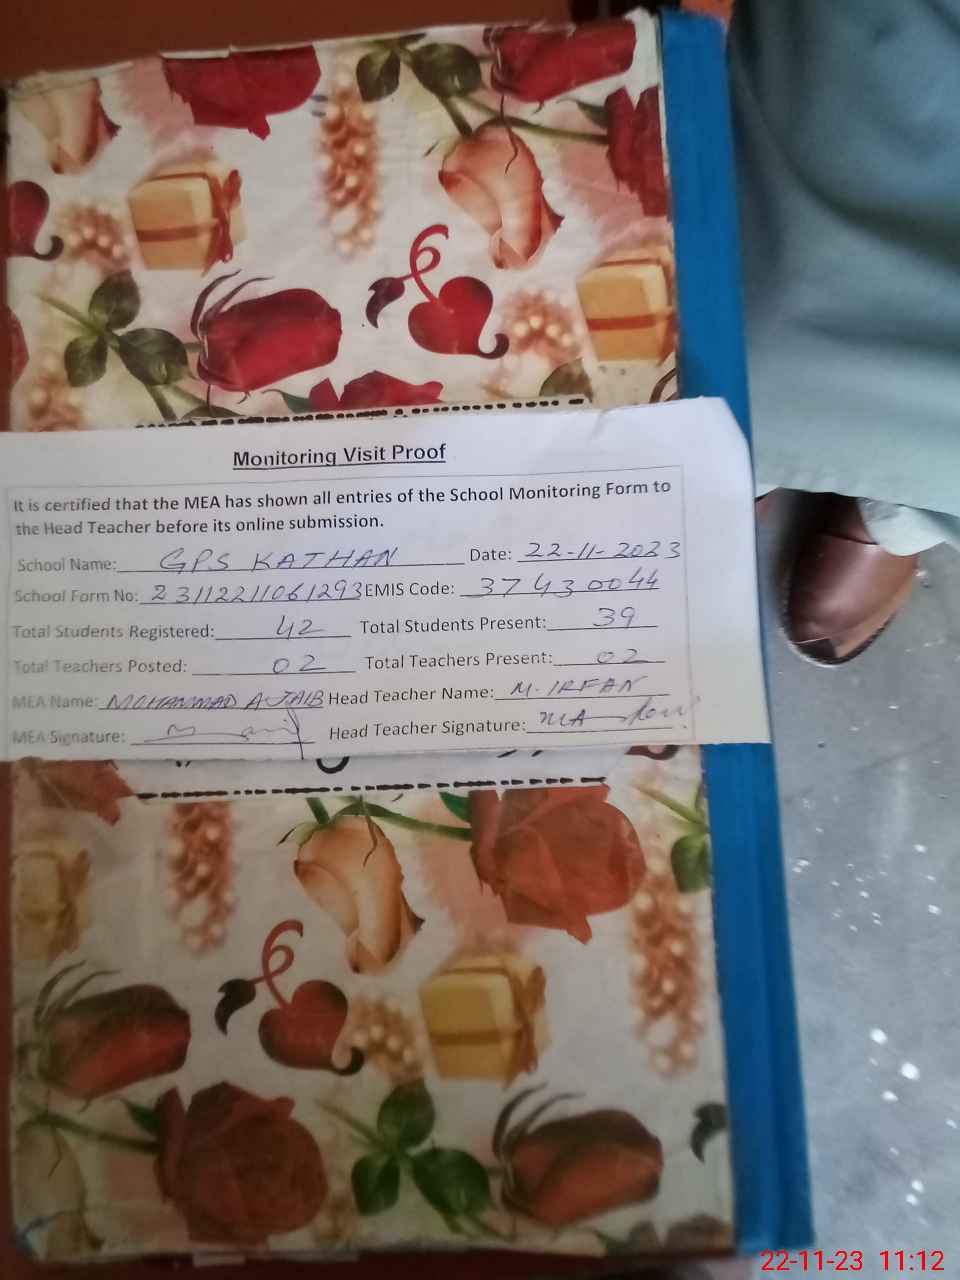 Monitoring Visit Proof
It is certified that the MEA has shown all entries of the School Monitoring Form to
the Head Teacher before its online submission.
School Name: GPS KATHAN Date: 22-11-2023
School Form No: 23112211061293 EMIS Code: 37430044
Total Students Registered: 42 Total Students Present: 39
Total Teachers Posted: 02 Total Teachers Present: 02
MEA Name: MOHAMMAD AJAIB Head Teacher Name: M. IRFAN
MEA Signature: Head Teacher Signature:
22-11-23 11:12